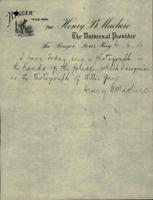 "RINGER"
TRADE MARK
FROM Henry B. Maclure
The Universal Provider
The Ringer Stores Hay
I have today seen a photograph in
the hands of the police which I recognise
as the Photograph of Willie
Henry B Maclure